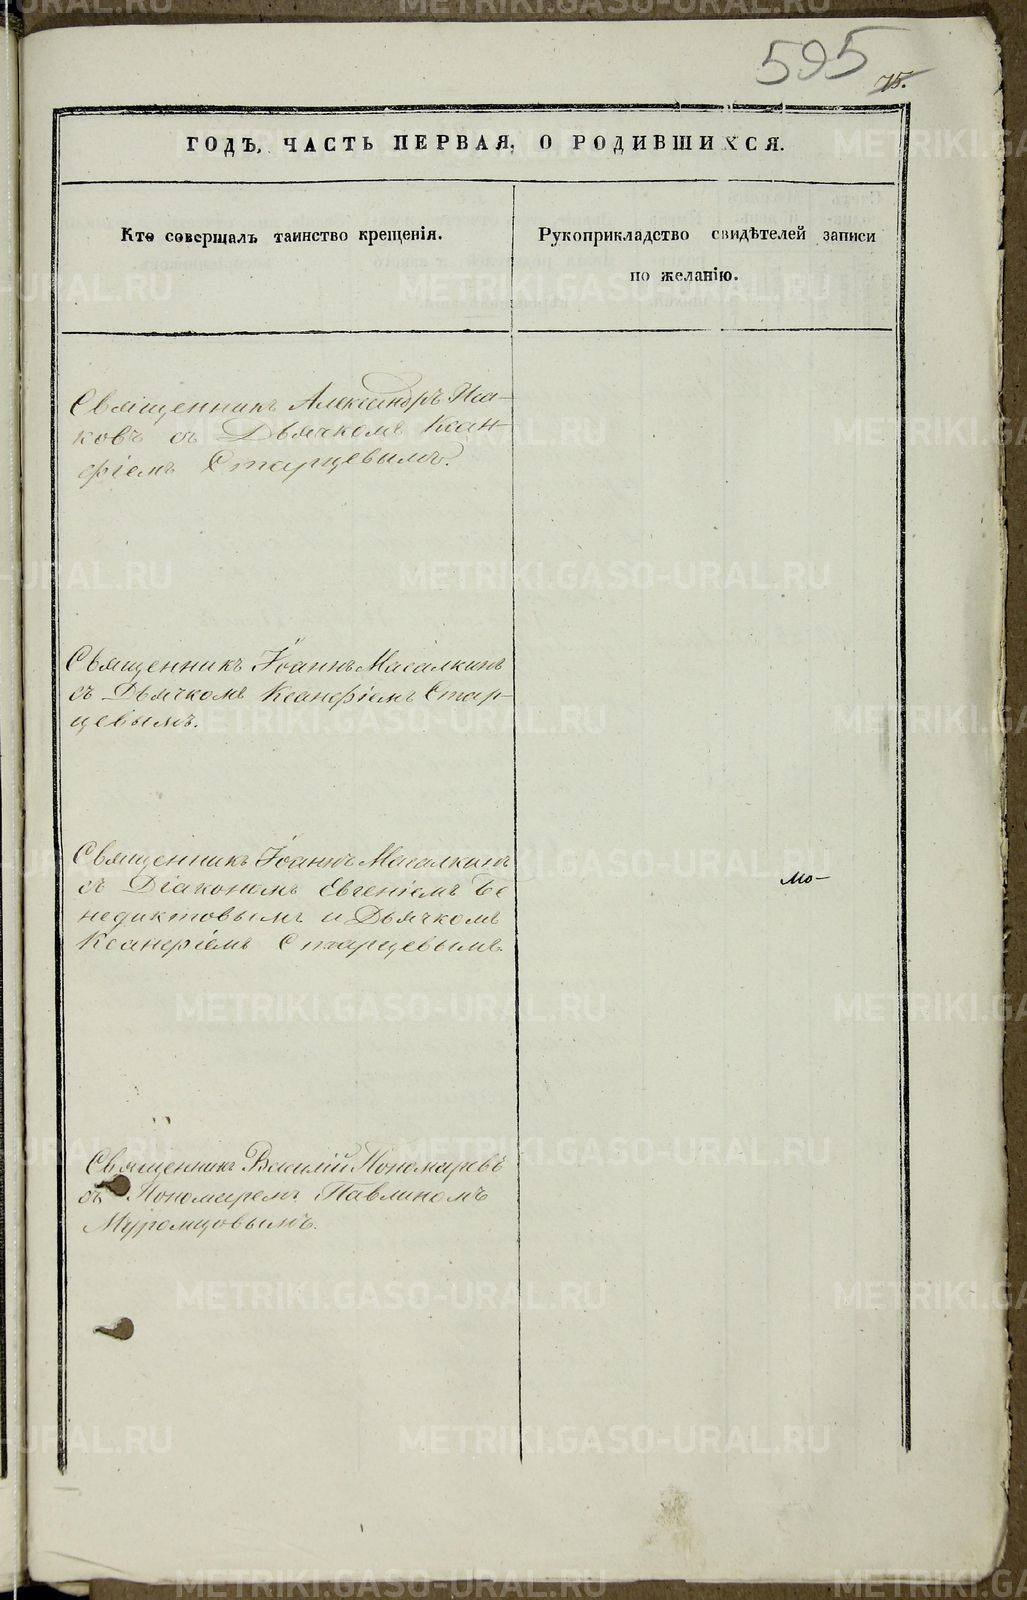 595
75.
ГОДЪ, ЧАСТЬ ПЕРВАЯ, О РОДИВШИХСЯ.
Кто совершалъ таинство крещенія.
Рукоприкладство свидѣтелей записи
по желанію.
Священникъ Александръ Иса-
ковъ съ Дьячкомъ Ксан-
фіемъ Старцевымъ.
Священникъ Іоаннъ Масалкинъ
съ Дьячкомъ Ксанфіемъ Стар-
цевымъ.
Священникъ Іоаннъ Масалкинъ
съ Діакономъ Евгеніемъ Бе
недиктовымъ и Дьячкомъ
Ксанфіемъ Старцевымъ.
мо-
Священникъ Василій Пономаревъ
съ Пономаремъ Павлиномъ
Муромцовымъ.
METRIKI.GASO-URAL.RU